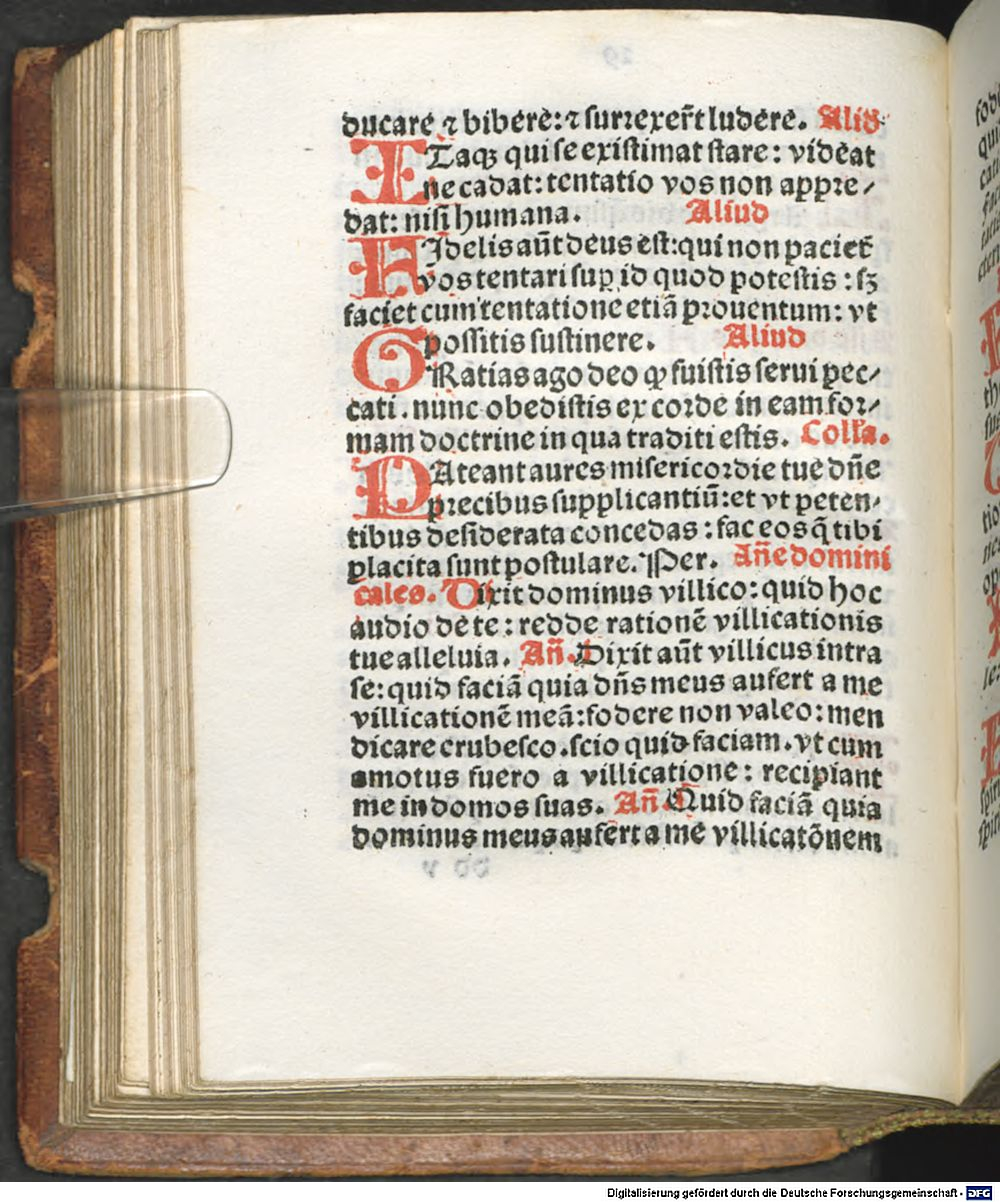 ducare ⁊ bibere: ⁊ surrexer̄t ludere. Aliđ
ITaqꝫ qui se existimat stare: videat
ne cadat: tentatio vos non appre⸗
dat: nisi humana. Aliud
FIdelis aūt deus est: qui non paciet᷑
vos tentari suꝑ id quod potestis: sꝫ
faciet cum tentatione etiā prouentum: vt
possitis sustinere. Aliud
GRatias ago deo ꝙ fuistis serui pec⸗
cati. nunc obedistis ex corde in eam for⸗
mam doctrine in qua traditi estis. Colła.
PAteant aures misericordie tue dn̄e
precibus supplicantiū: et vt peten⸗
tibus desiderata concedas: fac eos q̄ tibi
placita sunt postulare. Per. An̄e domini
cales. Dixit dominus villico: quid hoc
audio de te: redde rationē villicationis
tue alleluia. An̄. Dixit aūt villicus intra
se: quid faciā quia dn̄s meus aufert a me
villicationē meā: fodere non valeo: men
dicare erubesco. scio quid faciam. vt cum
amotus fuero a villicatione: recipiant
me in domos suas. An̄. Quid faciā quia
dominus meus aufert a me villicatōnem
Digitalisierung gefördert durch die Deutsche Forschungsgemeinschaft - DFG